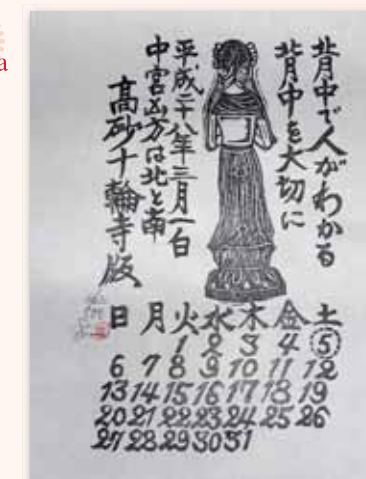 背中で人がわかる
背中を大切に
平成二十八年三月一日
中宮凶方は北と南
高砂十輪寺版
日 月 火 水 木 金 土
1 2 3 4 5
6 7 8 9 10 11 12
13 14 15 16 17 18 19
20 21 22 23 24 25 26
27 28 29 30 31
a